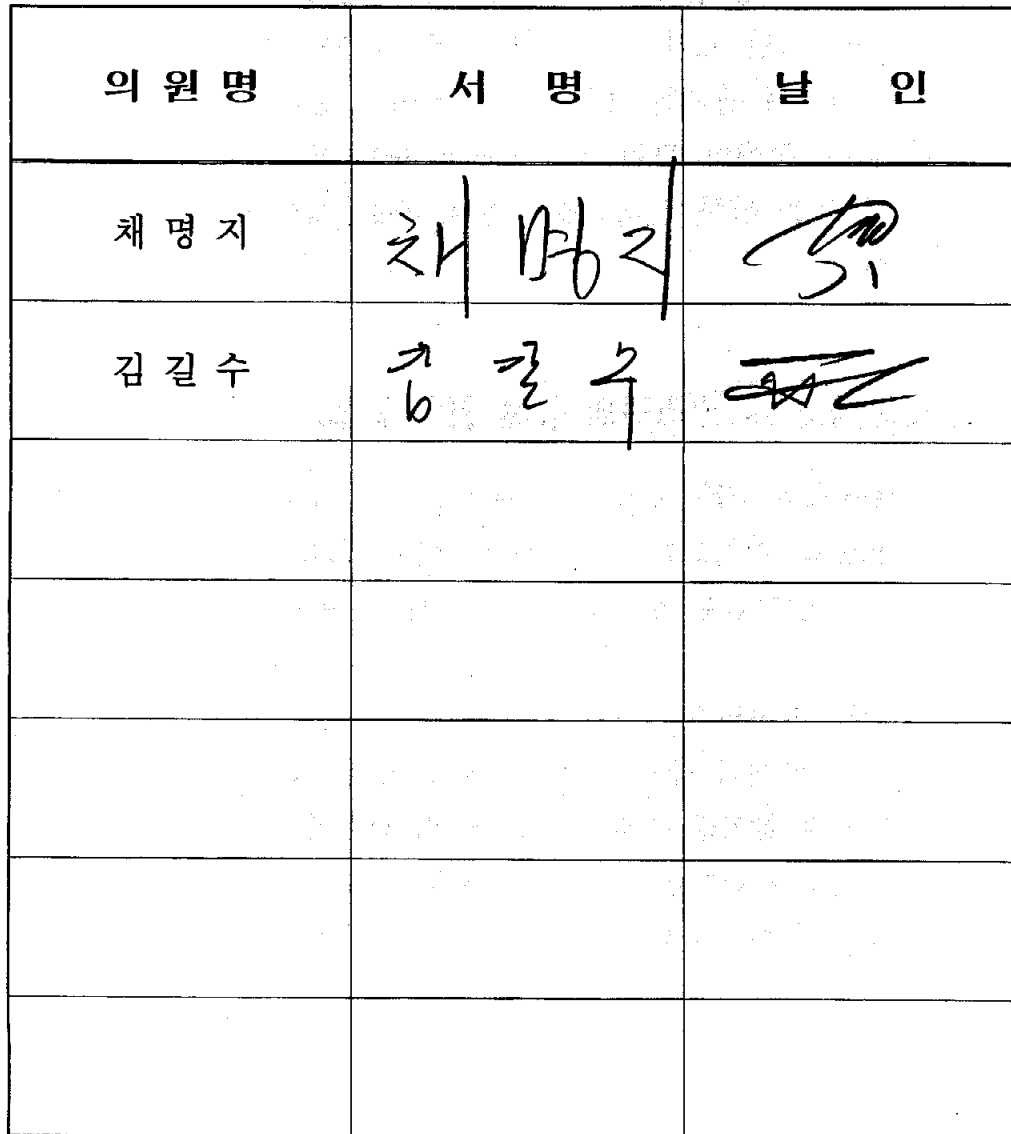 의 원 명 서 명 날 인
채 명 지 채 명 지
김 길 수 김 길 수